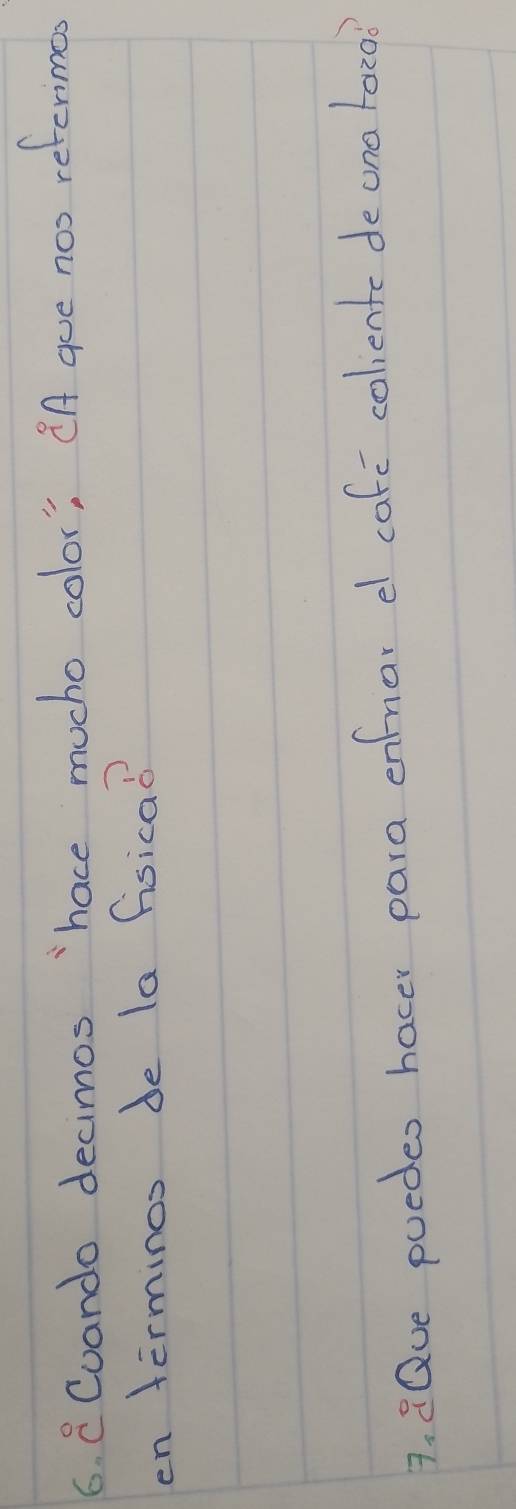 6. ¿Cuando decimos "hace mucho calor", ¿A que nos referimos
en términos de la física?
7. ¿Que puedes hacer para enfriar el café caliente de una taza?